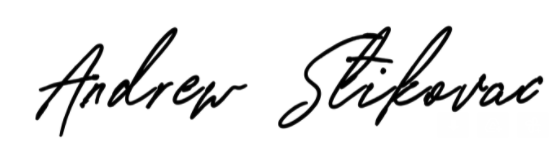 Andrew Stikovac